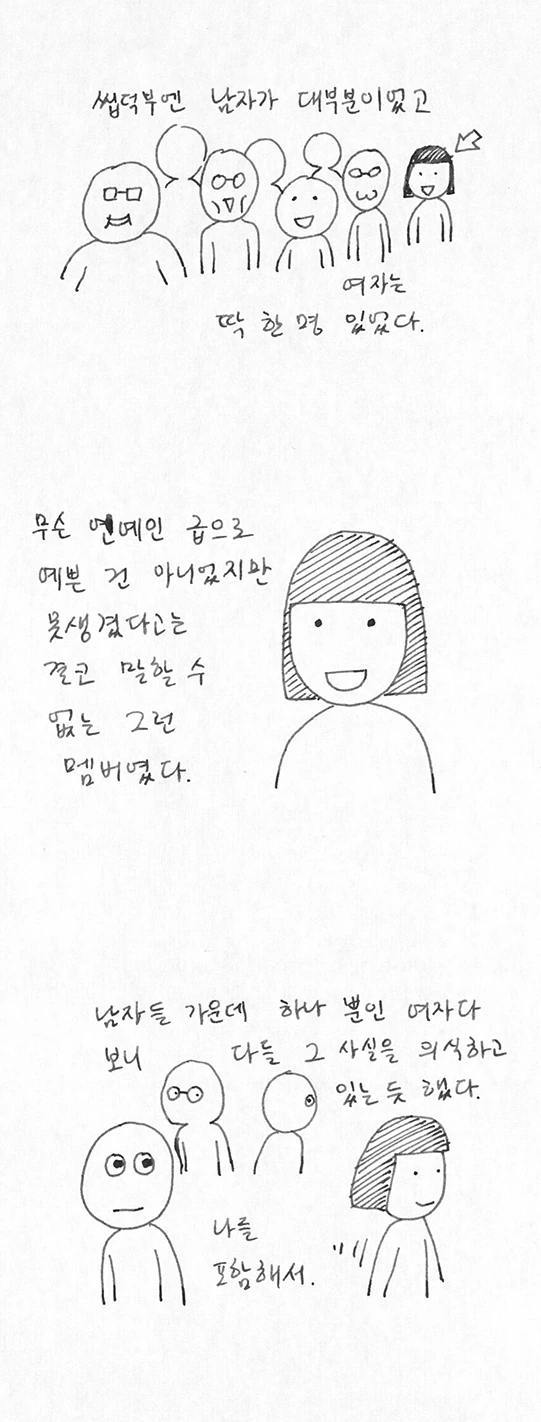 씹덕부엔 남자가 대부분이었고
여자는
딱 한 명 있었다.
무슨 연예인 급으로
예쁜 건 아니었지만
못생겼다고는
결코 말할 수
없는 그런
멤버였다.
남자들 가운데 하나 뿐인 여자다
보니 다들 그 사실을 의식하고
있는 듯 했다.
나를
포함해서.